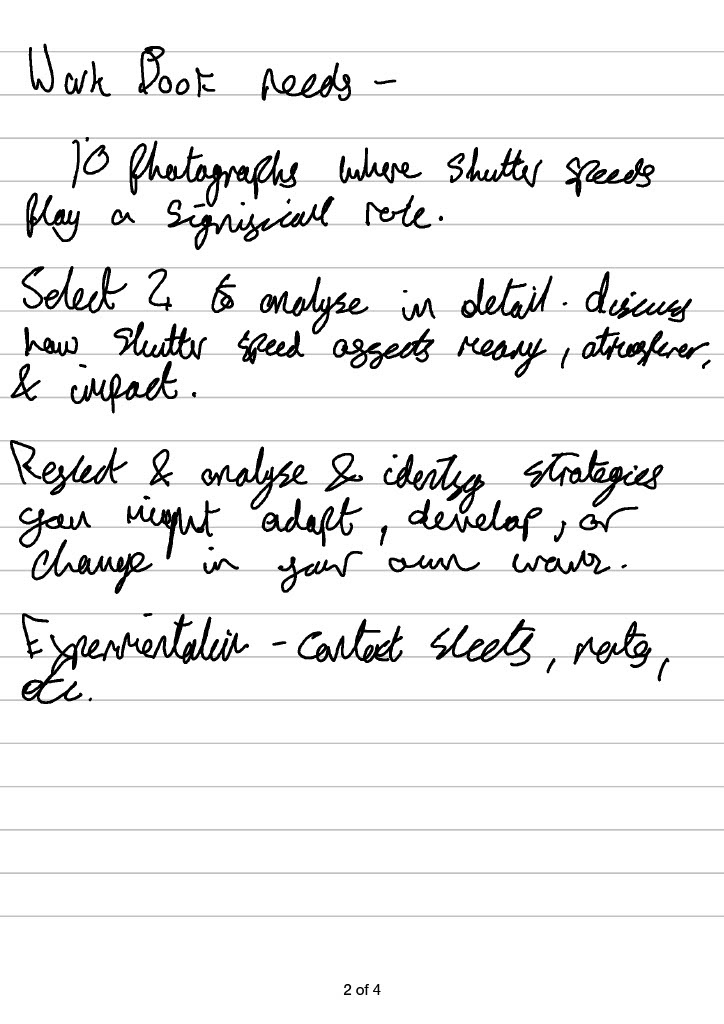 Work Book needs -
10 photographs where shutter speeds
play a significant role.
Select 2 to analyse in detail. discuss
how shutter speed affects meany, atmosferer,
& impact.
Reflect & analyse & identify strategies
you might adapt, develop, or
change in your own work.
Experimentation - contact sheets, notes,
etc.
2 of 4